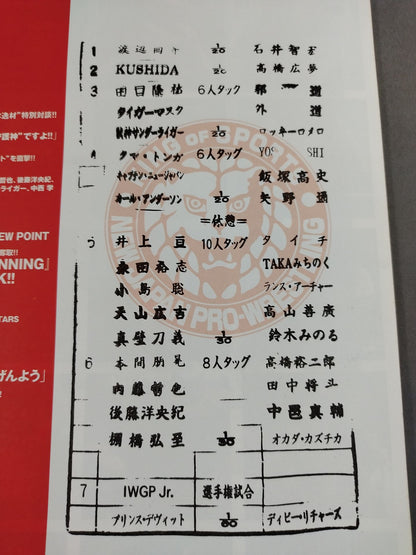 逸材"特別対談!!
護神"ですよ!!」
ト"を直撃!!
哲也、後藤洋央紀、
ライガー、中西 学
EW POINT
奪取!!
NNING』
K!!
TARS
げんよう」
1 渡辺高章 1/20 石井智宏
2 KUSHIDA 1/20 高橋広夢
3 田口隆祐 6人タッグ 邪道
タイガーマスク 外道
獣神サンダーライガー 1/20 ロッキーロメロ
4 タマ・トンガ 6人タッグ YOSHI
キャプテン・ニュージャパン 飯塚高史
カール・アンダーソン 1/20 矢野通
=休憩=
5 井上亘 10人タッグ タイチ
永田裕志 TAKAみちのく
小島聡 ランス・アーチャー
天山広吉 高山善廣
真壁刀義 1/30 鈴木みのる
6 本間朋晃 8人タッグ 高橋裕二郎
内藤哲也 田中将斗
後藤洋央紀 中邑真輔
棚橋弘至 1/30 オカダ・カズチカ
7 IWGP Jr. 選手権試合
プリンス・デヴィット 1/60 デイビーリチャーズ
KING OF SPORTS
NEW JAPAN PRO-WRESTLING